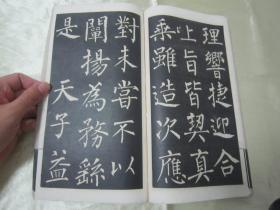 理響捷迎合
上旨皆契真
乘雖造次應
對未嘗不以
闡揚為務繇
是天子益